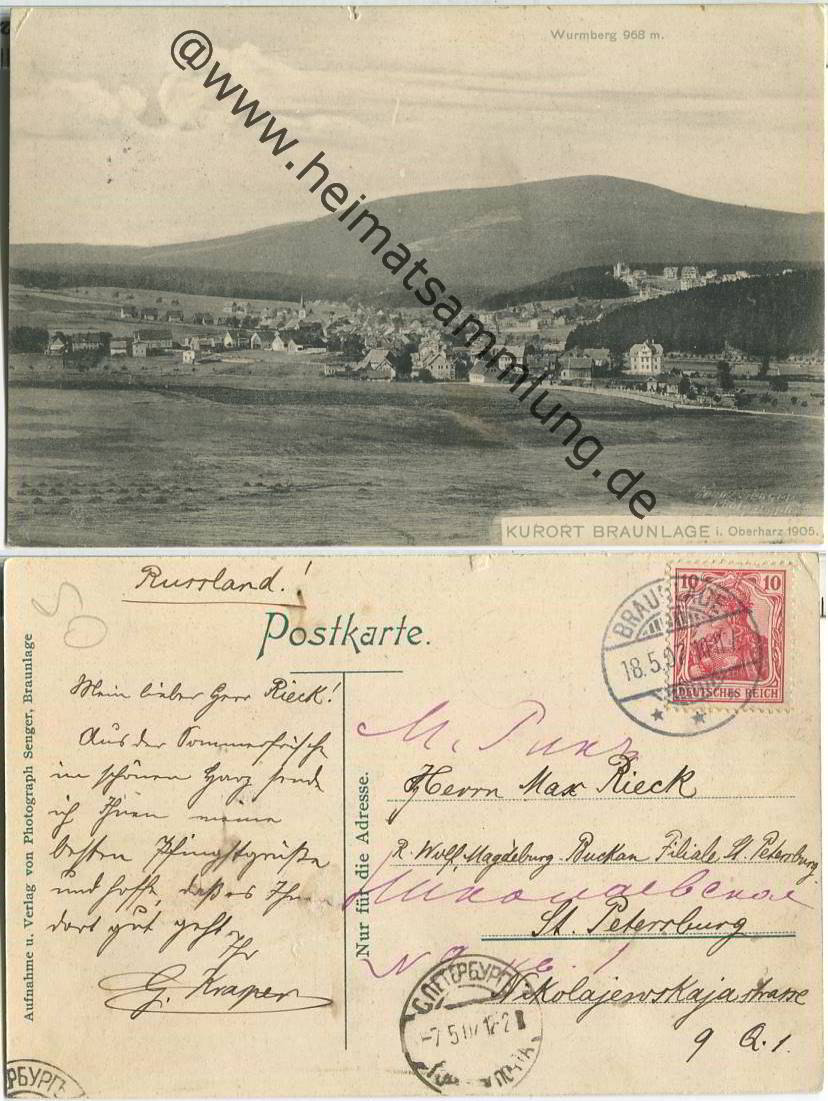 Wurmberg 968 m.
@www.heimatsammlung.de
KURORT BRAUNLAGE i. Oberharz 1905.
Russland!
Postkarte.
50
BRAUNLAGE
18.5.07
10 10
DEUTSCHES REICH
Aufnahme u. Verlag von Photograph Senger, Braunlage
Mein lieber Herr Rieck!
Aus der Sommerfrische
im schönen Harz sende
ich Ihnen meine
besten Pfingstgrüße
und hoffe, daß es Ihnen
dort gut geht
Ihr
G. Kraper
Nur für die Adresse.
М. Рикъ
Herrn Max Rieck
R. Wolf, Magdeburg-Buckau Filiale St. Petersburg.
Николаевская
St. Petersburg
Nikolajewskajastrasse
9 Q. 1.
С.ПЕТЕРБУРГЪ
-7.5.07 12-2
ПОЧТА
РБУРГЪ